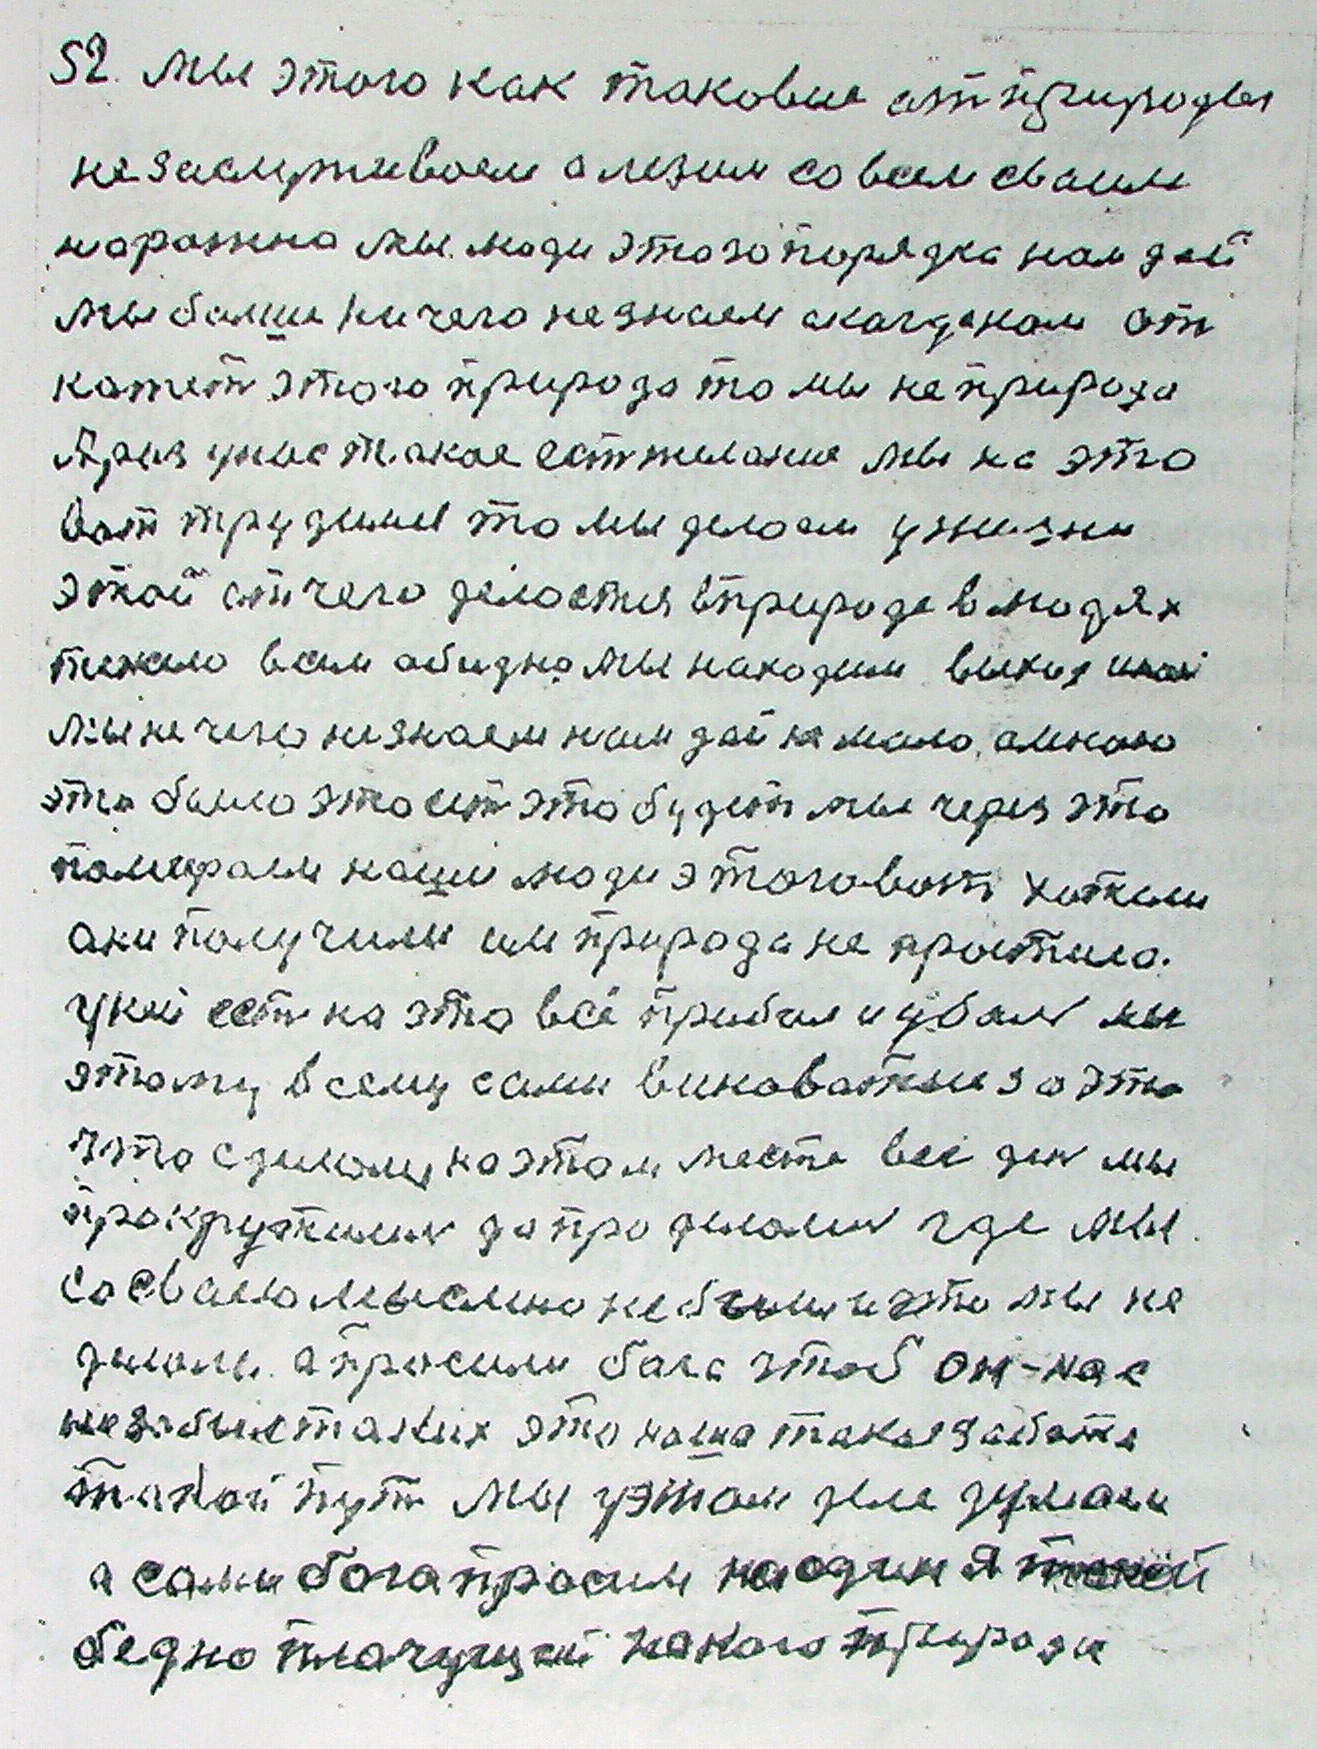 52. мы этого как таковые от природы
не заслуживаем а лезим со всем своим
нарожно мы люди этого порядка нам дай
мы болши ничего не знаем а когда нам от
кажет этого природа то мы не природа
А раз у нас такое ест желание мы на это
вот трудимся то мы делаем у жизни
этой от чего делается в природе в людях
тижело всем обидно мы находим выход
мы не чего не знаем нам дай не мало, а много
это было это ест это будет мы через это
помираем наши люди этого вот хотели
они получили им природа не простила.
у ней ест на это всё прибыл и убыл мы
этому всему сами виноватые за это
что сделали на этом месте все ден мы
прокрутилис да проделалис где мы
со своею мыслию не были и это мы не
делали. а просили бога чтоб он нас
не забыл таких это наша такая забота
такой пут мы у этом деле думаем
а сами бога просим не один я такой
бедно плачущий на кого природа